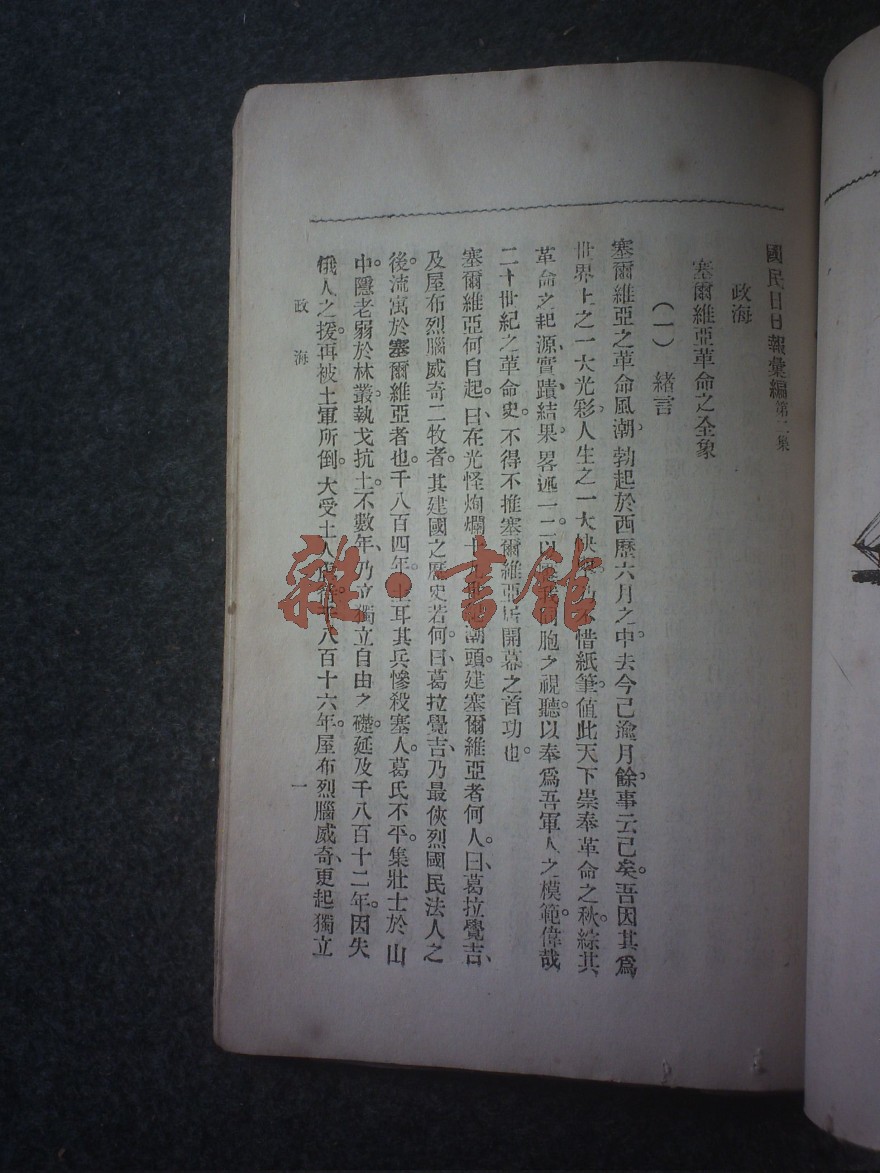 國民日日報彙編第二集
政海
塞爾維亞革命之全象
（一）　緒言
塞爾維亞之革命風潮。勃起於西歷六月之中。去今已逾月餘。事云已矣。吾因其爲
世界上之一大光彩。人生之一大快 惜紙筆。值此天下崇奉革命之秋。綜其
革命之起源、實蹟、結果。畧述一二。以 同胞之視聽。以奉爲吾軍人之模範。偉哉
二十世紀之革命史。不得不推塞爾維亞居開幕之首功也。
塞爾維亞何自起。曰、在光怪炯爛十 潮頭。建塞爾維亞者何人。曰、葛拉覺吉、
及屋布烈腦威奇二牧者。其建國之歷史若何。曰、葛拉覺吉、乃最俠烈國民法人之
後。流寓於塞爾維亞者也。千八百四年。土耳其兵慘殺塞人。葛氏不平。集壯士於山
中。隱老弱於林叢。執戈抗土。不數年、乃立獨立自由之礎。延及千八百十二年。因失
俄人之援。再被土軍所倒。大受土人 千八百十六年。屋布烈腦威奇、更起獨立
政海
一
雜·書館